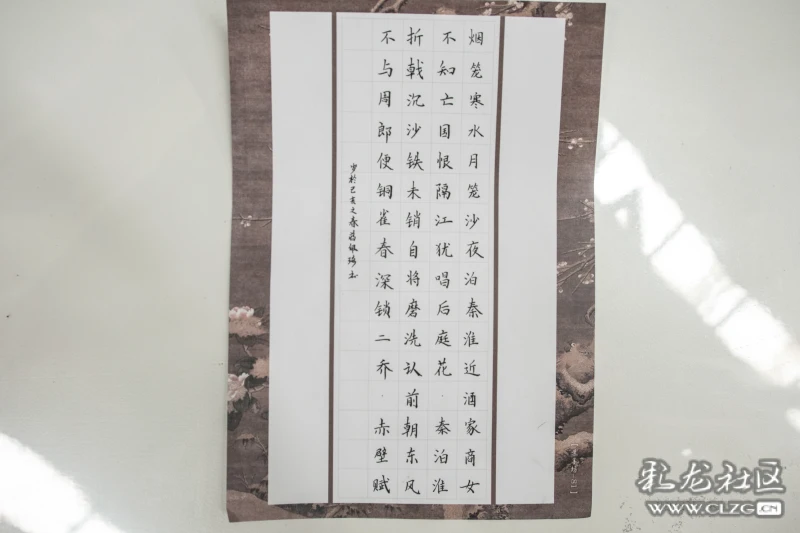 烟笼寒水月笼沙夜泊秦淮近酒家商女
不知亡国恨隔江犹唱后庭花·秦泊淮
折戟沉沙铁未销自将磨洗认前朝东风
不与周郎便铜雀春深锁二乔·赤壁赋
于己亥之春
龙社区
WWW.CLZG.CN